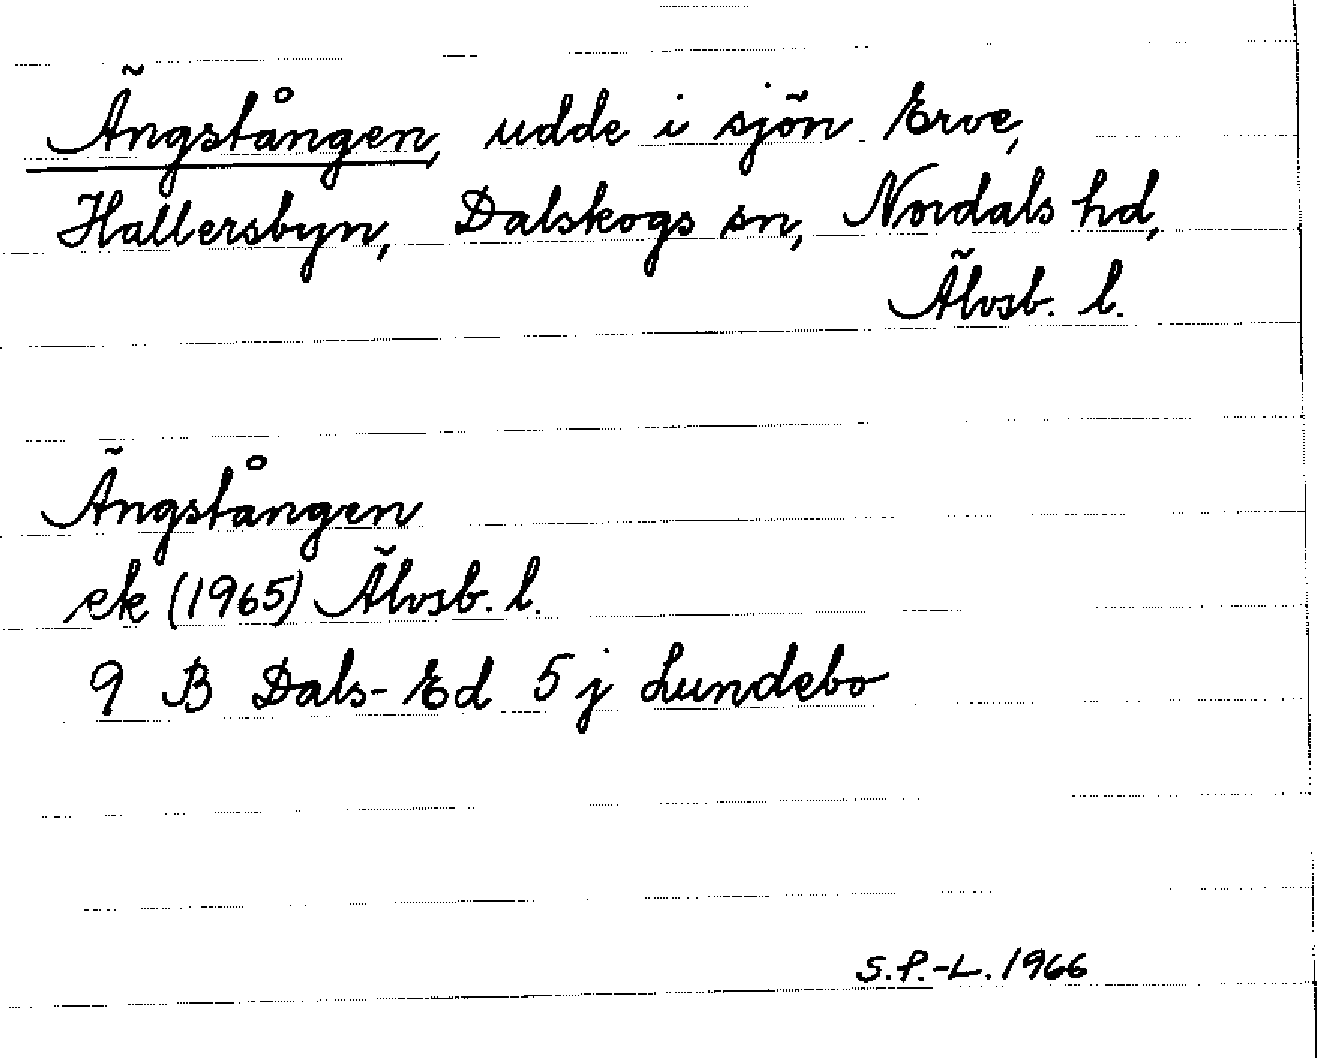 Ängstången, udde i sjön Erve,
Hallersbyn, Dalskogs sn, Nordals hd,
Älvsb. l.
Ängstången
ek (1965) Älvsb. l.
9 B Dals-Ed 5 j Lundebo
S.P.-L. 1966